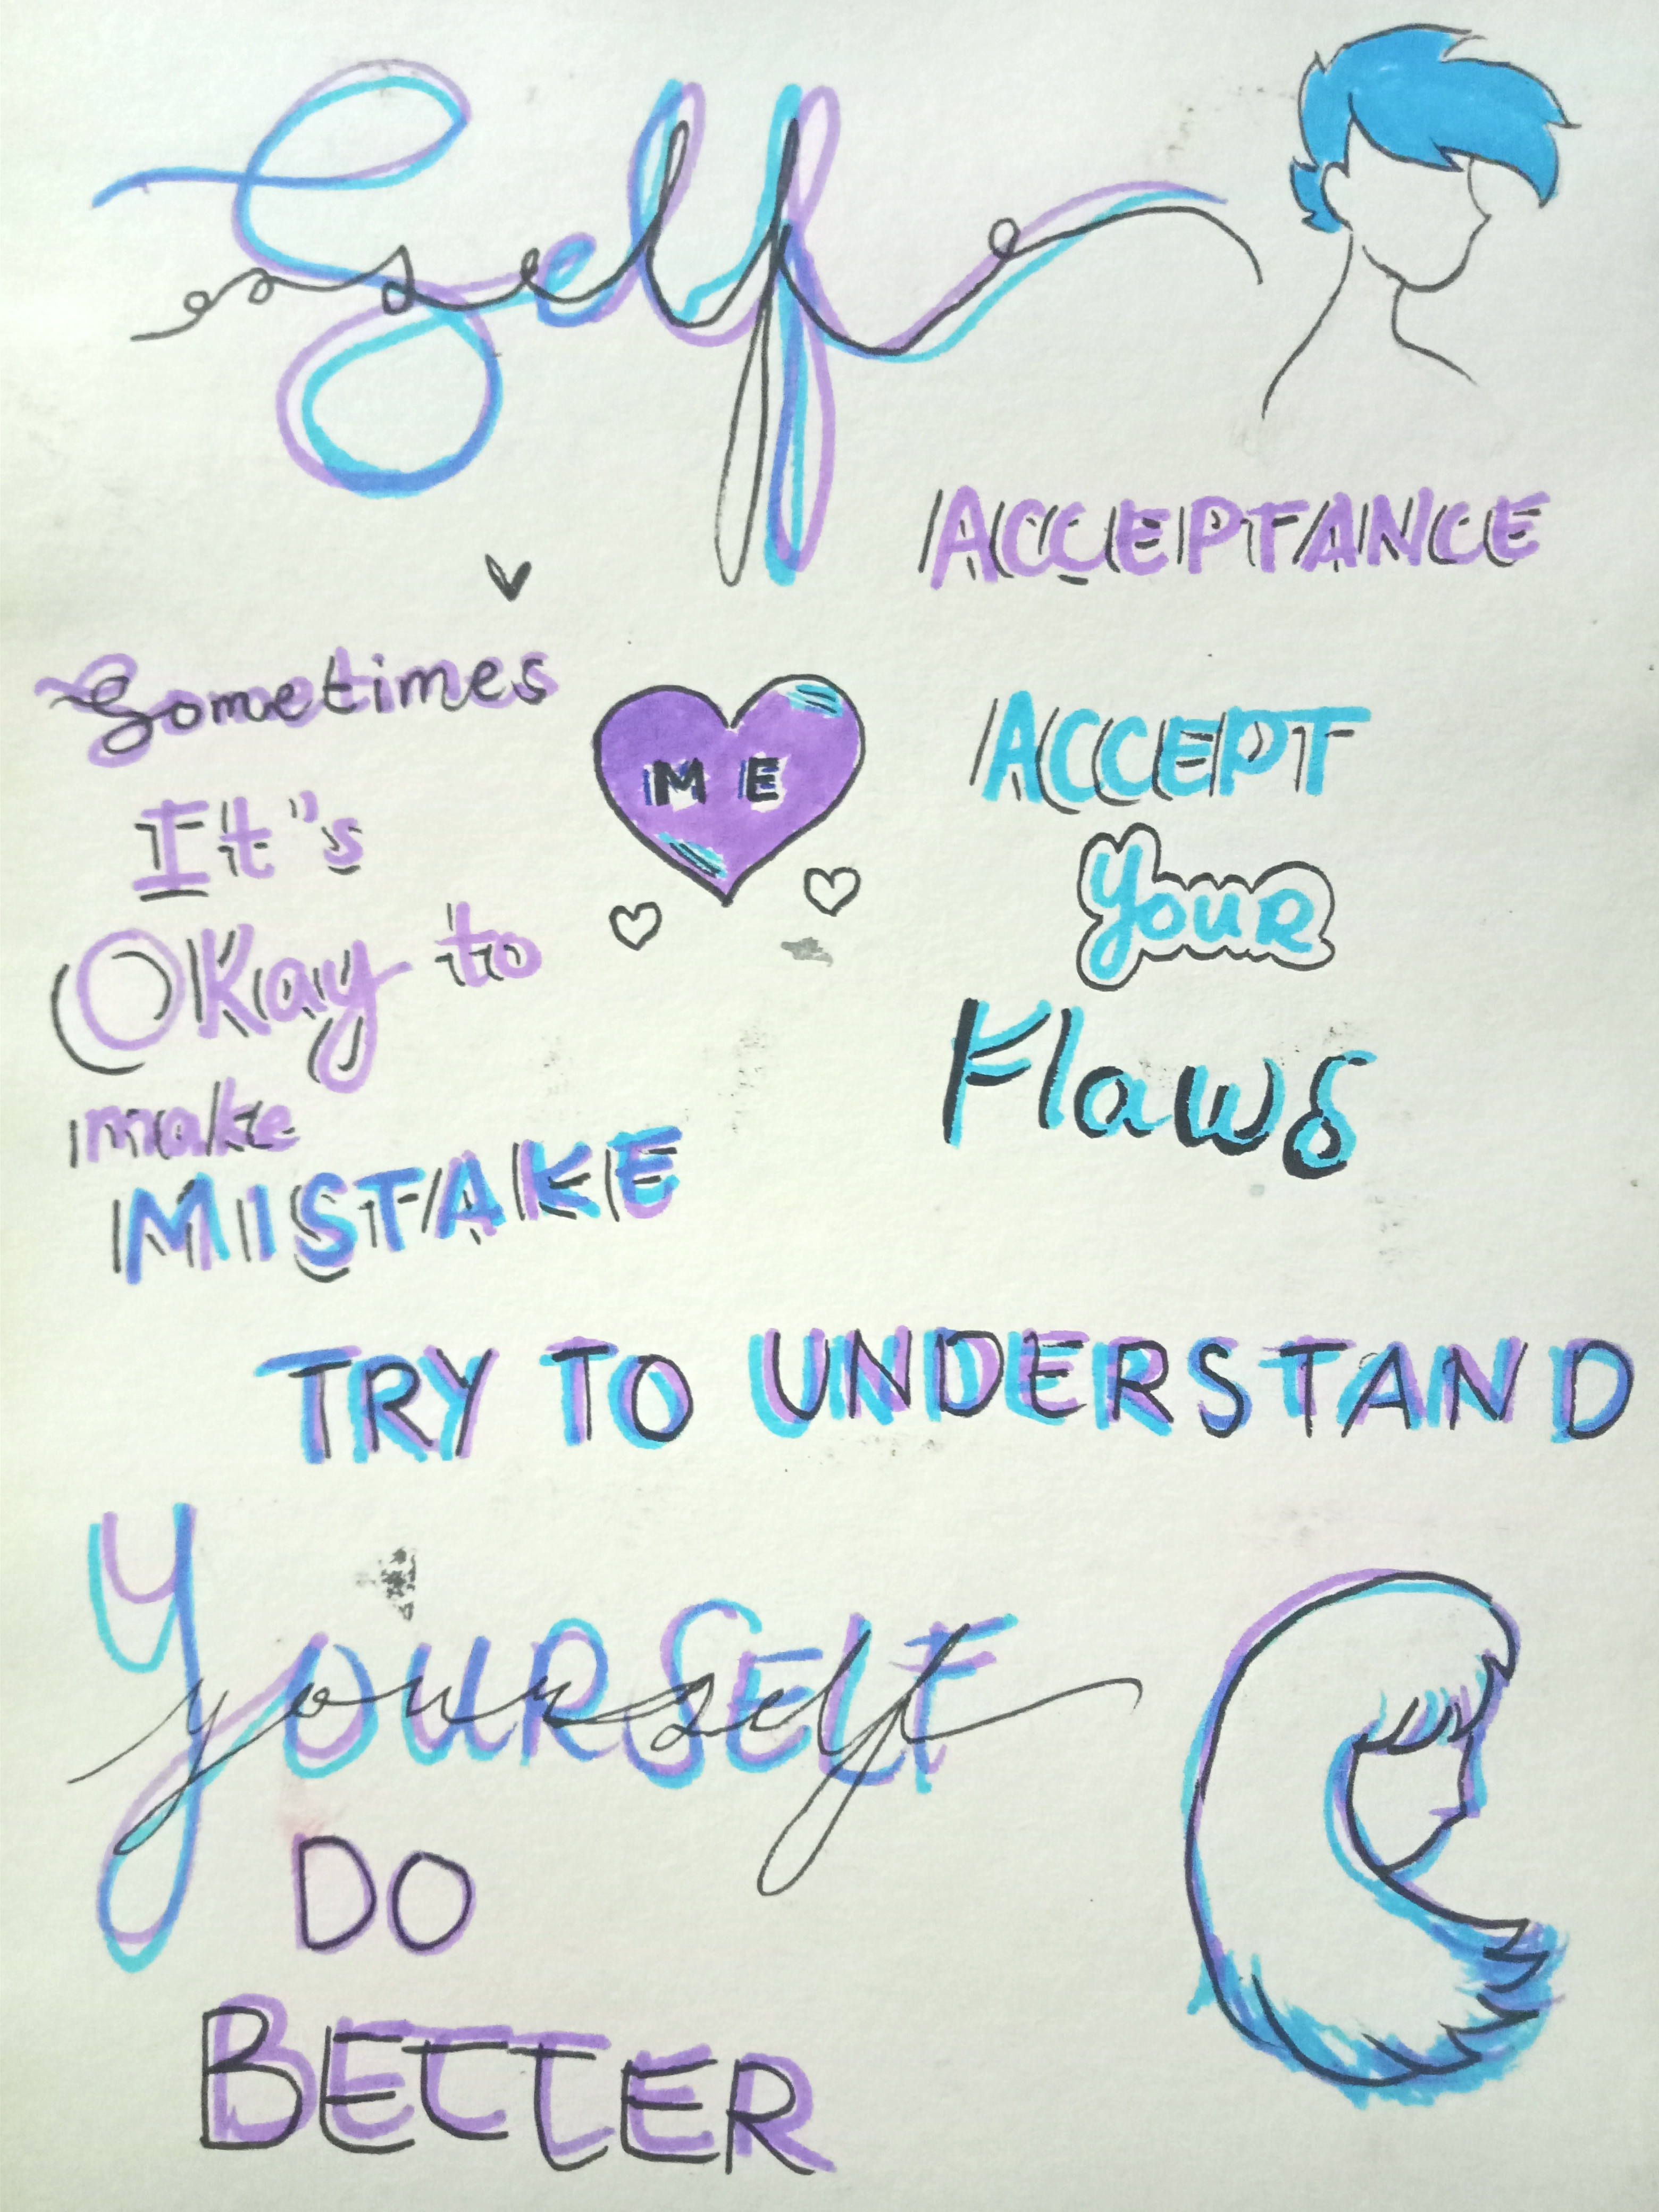 Self
ACCEPTANCE
Sometimes
It"s
Okay to
make
MISTAKE
ME
ACCEPT
your
Flaws
TRY TO UNDERSTAND
YOURSELF
yourself
DO
BETTER